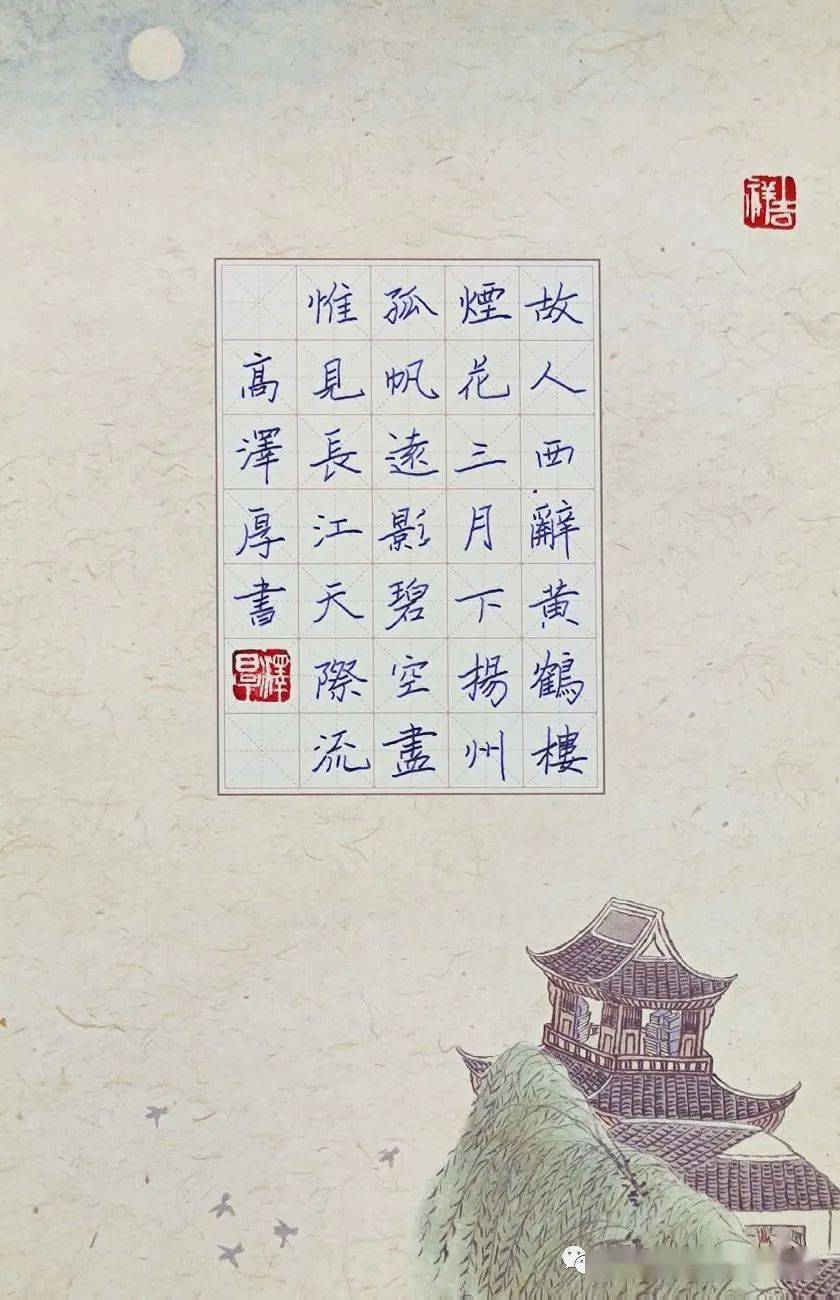 故人西辭黄鶴樓
煙花三月下揚州
孤帆遠影碧空盡
惟見長江天際流
高澤厚書
澤厚
吉祥